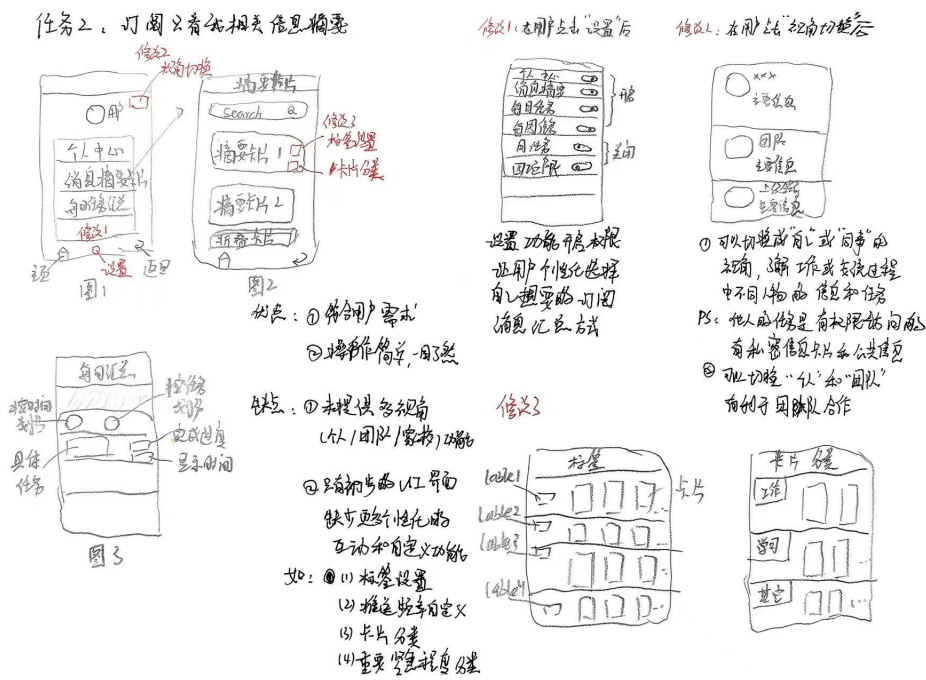 任务2：订阅只看我相关信息摘要
修改2
视角切换
用
个人中心
消息摘要卡片
每日任务汇总
修改1
主页
设置
返回
图1
摘要卡片
search
摘要卡片1
修改3
标签设置
卡片分类
摘要卡片2
折叠卡片
图2
优点：①符合用户需求
②操作简单，一目了然
每日汇总
按时间
划分
按任务
划分
完成进度
显示时间
具体
任务
图3
缺点：①未提供多视角
(个人/团队/家校)功能
②只有初步的UI界面
缺少更多个性化的
互动和自定义功能
如：(1)标签设置
(2)推送频率自定义
(3)卡片分类
(4)重要紧急程度分类
修改1：在用户点击"设置"后
个人中心
消息摘要
每日任务
每周任务
周任务
团队
开启
关闭
设置功能开启权限
让用户个性化选择
自己想要的订阅
消息汇总方式
修改2：在用户点击"视角切换"后
xxx
主要信息
团队
主要信息
主要信息
①可以切换成"自己"或"同事"的
视角，了解工作或交流过程
中不同人物的信息和任务
PS：他人的任务是有权限访问的
有私密信息卡片和公共信息
②可以切换"个人"和"团队"
有利于团队合作
修改3
标签
lable1
lable2
lable3
lable4
卡片
卡片分类
工作
学习
其它